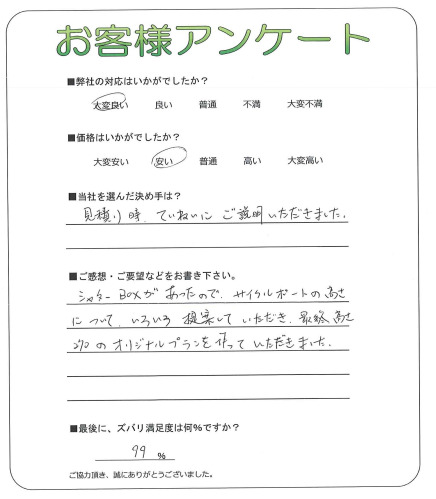 お客様アンケート
■弊社の対応はいかがでしたか？
大変良い 良い 普通 不満 大変不満
■価格はいかがでしたか？
大変安い 安い 普通 高い 大変高い
■当社を選んだ決め手は？
見積り時、ていねいに ご説明いただきました。
■ご感想・ご要望などをお書き下さい。
シャッターBOXが あったので、サイクルポートの高さ
について、いろいろ 提案して いただき、最終 高さ
270 の オリジナルプランを 作って いただきました。
■最後に、ズバリ満足度は何％ですか？
99 ％
ご協力頂き、誠にありがとうございました。